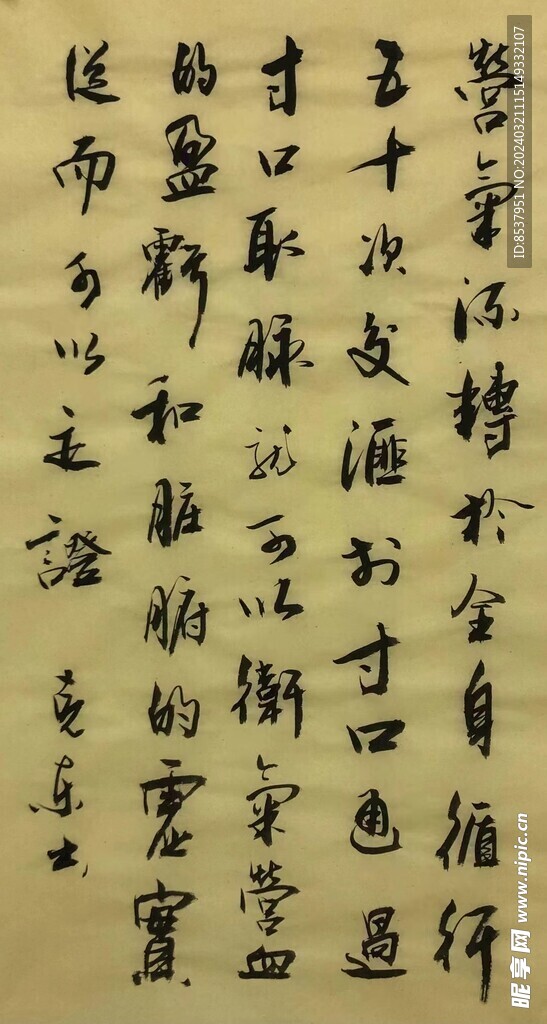 營氣流轉於全身循行
五十次交匯於寸口通過
寸口取脈就可以衛氣營血
的盈虧和脏腑的虛實
從而可以定證
克東书
ID:8537951 NO:20240321115149332107
昵享网 www.nipic.cn